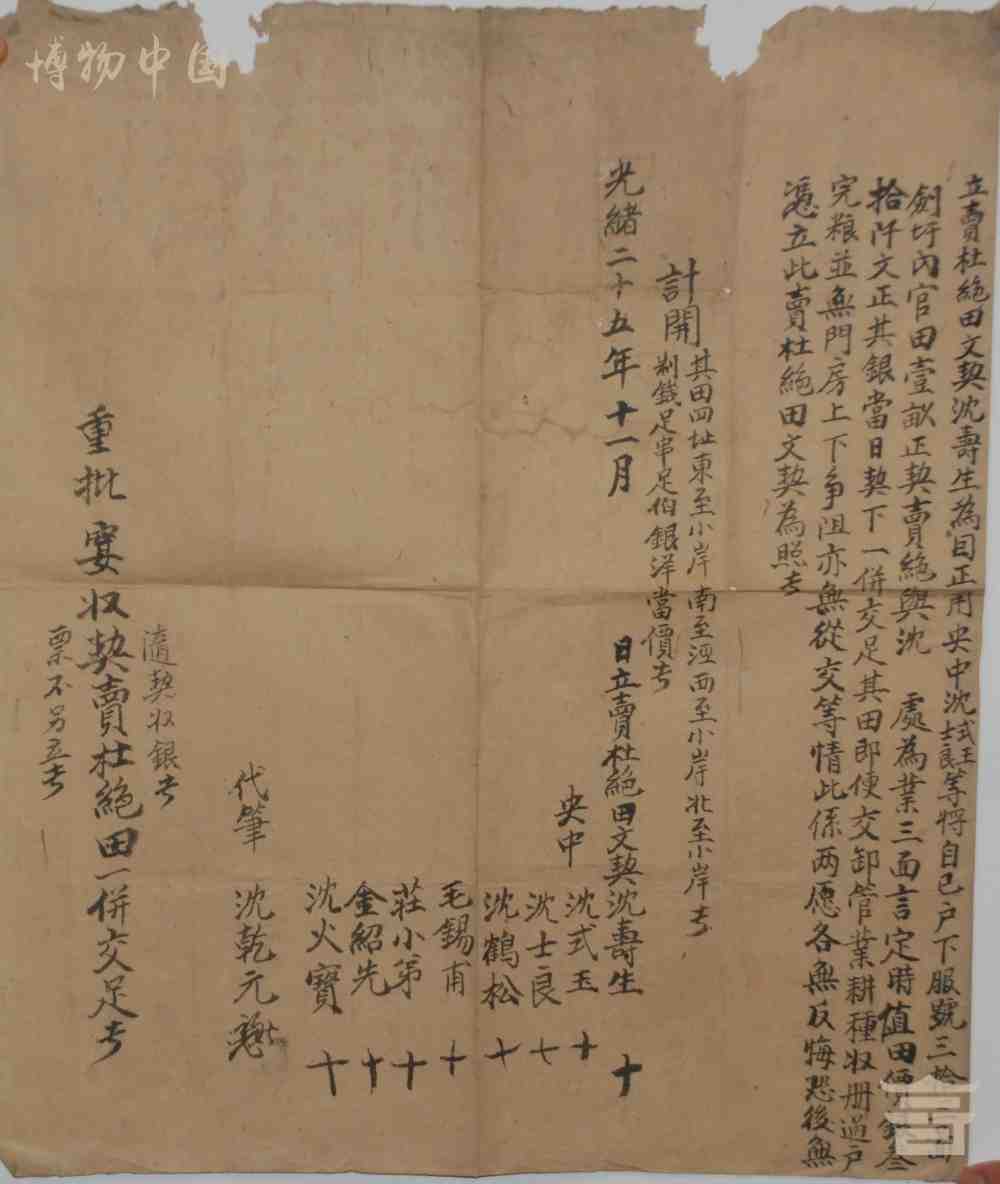 立賣杜絕田文契沈壽生為因正用央中沈式玉士良等將自己户下服號三拾
劍圩內官田壹畝正契賣絕與沈　處為業三面言定時值田價銀叁
拾阡文正其銀當日契下一併交足其田即便交卸管業耕種收册過户
完粮並無門房上下爭阻亦無從交等情此係两愿各無反悔恐後無
憑立此賣杜絕田文契為照𠫵
計開
其田四址東至小岸南至涇西至小岸北至小岸𠫵
制錢足串足伯銀洋當價𠫵
光緒二十五年十一月　日立賣杜絕田文契沈壽生　十
央中　沈式玉　十
沈士良　七
沈鶴松　十
毛錫甫　十
莊小弟　十
金紹先　十
沈火寶　十
代筆　沈乾元
隨契收銀𠫵
重批寔收契賣杜絕田一併交足𠫵
票不另立𠫵
博物中国